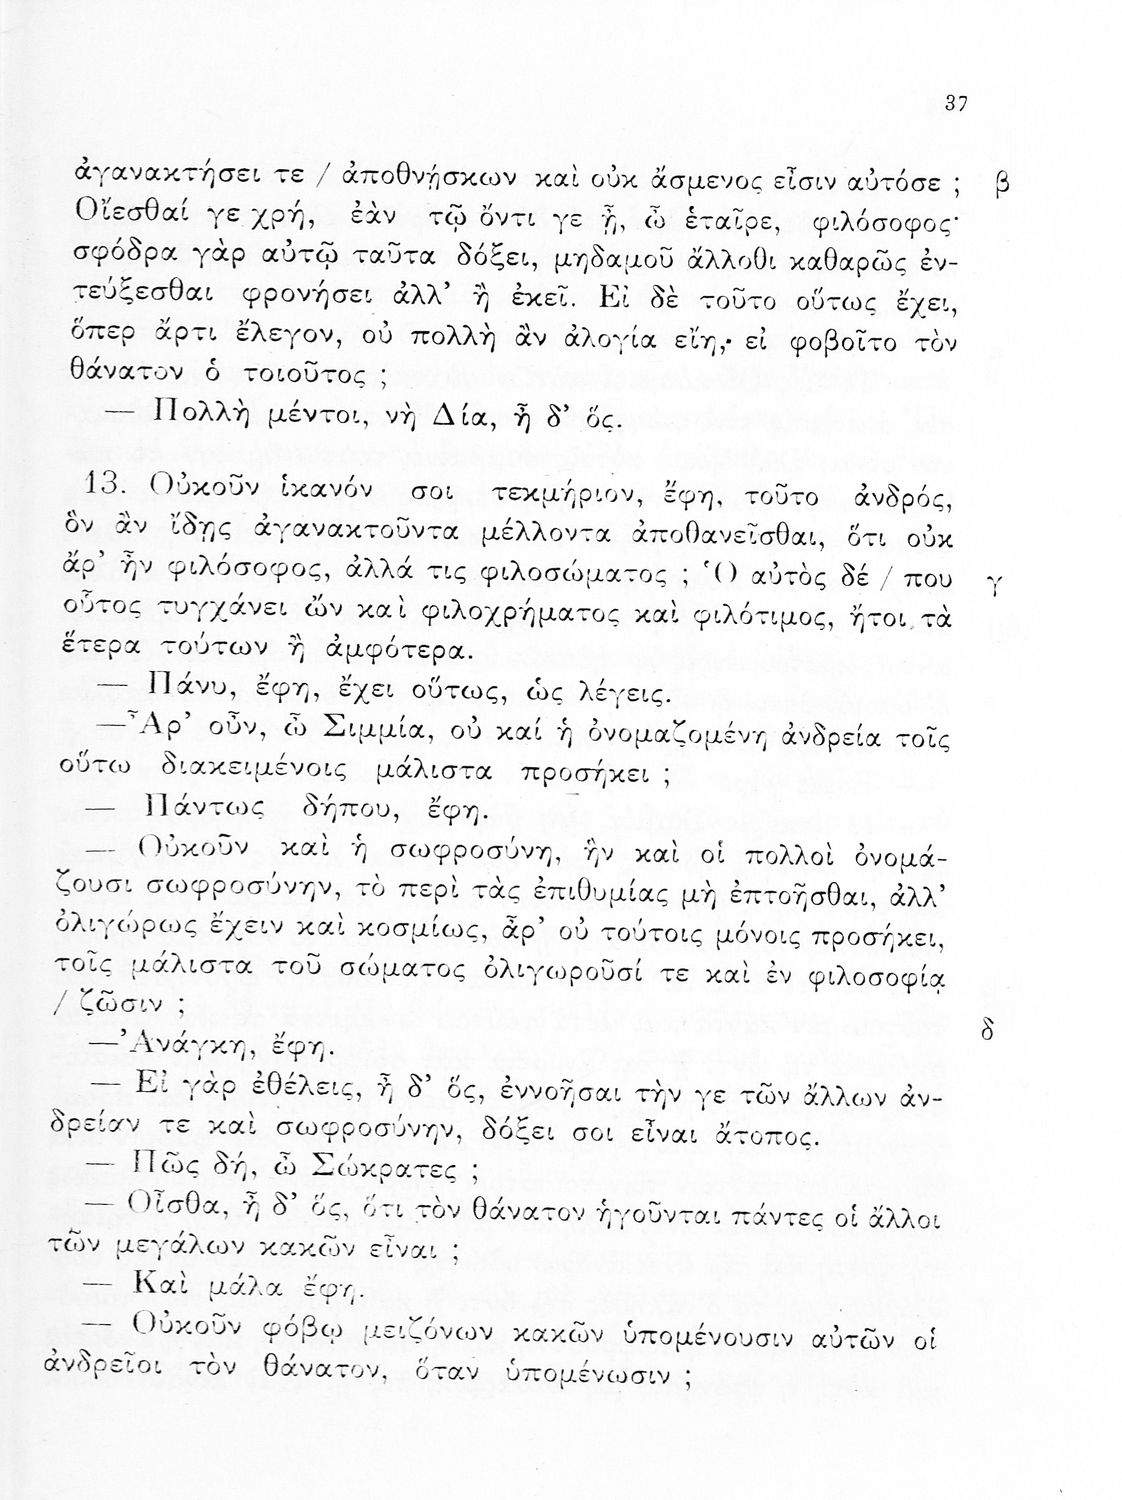 37
ἀγανακτήσει τε / ἀποθνῄσκων καὶ οὐκ ἄσμενος εἶσιν αὐτόσε ; β
Οἴεσθαί γε χρή, ἐὰν τῷ ὄντι γε ᾖ, ὦ ἑταῖρε, φιλόσοφος·
σφόδρα γὰρ αὐτῷ ταῦτα δόξει, μηδαμοῦ ἄλλοθι καθαρῶς ἐν-
τεύξεσθαι φρονήσει ἀλλ’ ἢ ἐκεῖ. Εἰ δὲ τοῦτο οὕτως ἔχει,
ὅπερ ἄρτι ἔλεγον, οὐ πολλὴ ἂν ἀλογία εἴη, εἰ φοβοῖτο τὸν
θάνατον ὁ τοιοῦτος ;
— Πολλὴ μέντοι, νὴ Δία, ἦ δ’ ὅς.
13. Οὐκοῦν ἱκανόν σοι τεκμήριον, ἔφη, τοῦτο ἀνδρός,
ὃν ἂν ἴδῃς ἀγανακτοῦντα μέλλοντα ἀποθανεῖσθαι, ὅτι οὐκ
ἄρ’ ἦν φιλόσοφος, ἀλλά τις φιλοσώματος ; Ὁ αὐτὸς δέ / που γ
οὗτος τυγχάνει ὢν καὶ φιλοχρήματος καὶ φιλότιμος, ἤτοι τὰ
ἕτερα τούτων ἢ ἀμφότερα.
— Πάνυ, ἔφη, ἔχει οὕτως, ὡς λέγεις.
— Ἆρ’ οὖν, ὦ Σιμμία, οὐ καί ἡ ὀνομαζομένη ἀνδρεία τοῖς
οὕτω διακειμένοις μάλιστα προσήκει ;
— Πάντως δήπου, ἔφη.
— Οὐκοῦν καὶ ἡ σωφροσύνη, ἣν καὶ οἱ πολλοὶ ὀνομά-
ζουσι σωφροσύνην, τὸ περὶ τὰς ἐπιθυμίας μὴ ἐπτοῆσθαι, ἀλλ’
ὀλιγώρως ἔχειν καὶ κοσμίως, ἆρ’ οὐ τούτοις μόνοις προσήκει,
τοῖς μάλιστα τοῦ σώματος ὀλιγωροῦσί τε καὶ ἐν φιλοσοφίᾳ
/ ζῶσιν ; δ
— Ἀνάγκη, ἔφη.
— Εἰ γὰρ ἐθέλεις, ἦ δ’ ὅς, ἐννοῆσαι τήν γε τῶν ἄλλων ἀν-
δρείαν τε καὶ σωφροσύνην, δόξει σοι εἶναι ἄτοπος.
— Πῶς δή, ὦ Σώκρατες ;
— Οἶσθα, ἦ δ’ ὅς, ὅτι τὸν θάνατον ἡγοῦνται πάντες οἱ ἄλλοι
τῶν μεγάλων κακῶν εἶναι ;
— Καὶ μάλα ἔφη.
— Οὐκοῦν φόβῳ μειζόνων κακῶν ὑπομένουσιν αὐτῶν οἱ
ἀνδρεῖοι τὸν θάνατον, ὅταν ὑπομένωσιν ;